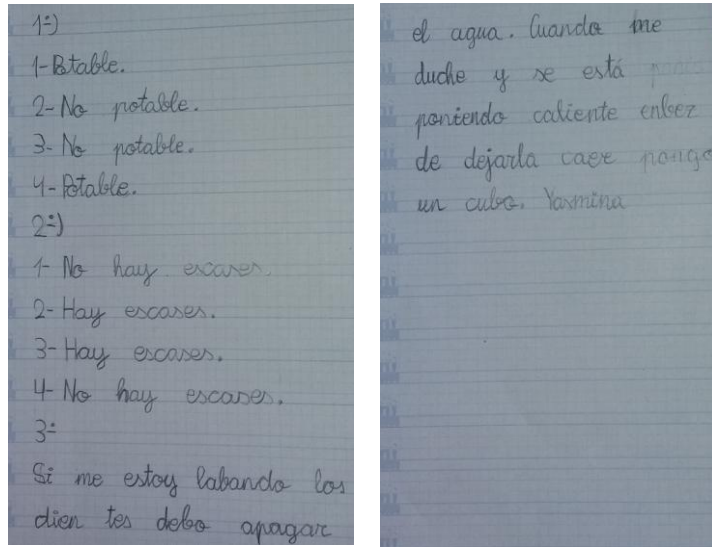 1º)
1-Potable.
2-No potable.
3-No potable.
4-Potable.
2º)
1-No hay escases.
2-Hay escases.
3-Hay escases.
4-No hay escases.
3º
Si me estoy labando los
dien tes debo apagar
el agua. Cuando me
duche y se está
poniendo caliente enbez
de dejarla caer pongo
un cubo. Yasmina